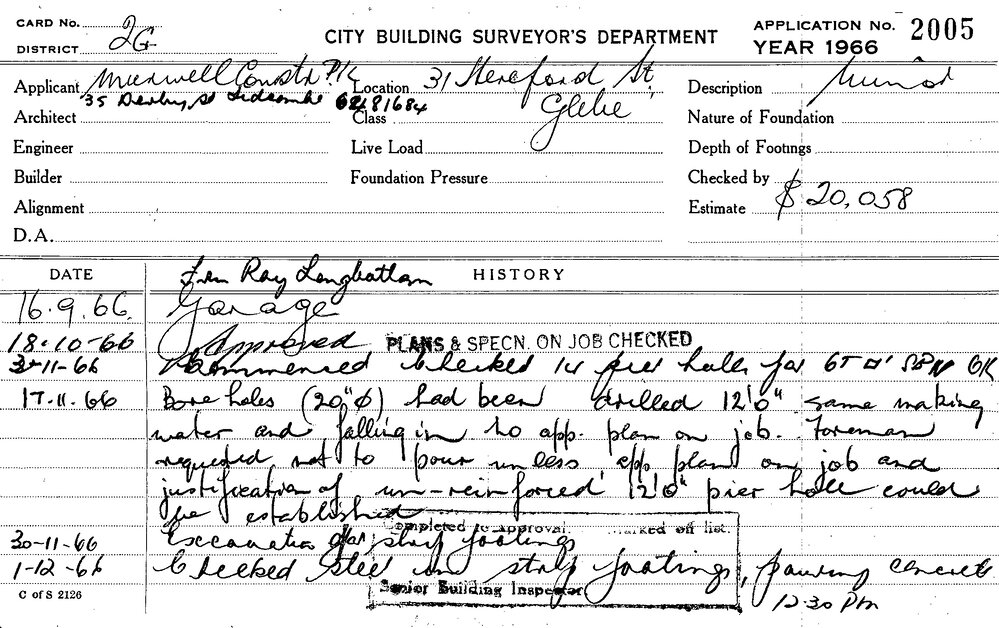 CARD No.
DISTRICT 2G
CITY BUILDING SURVEYOR'S DEPARTMENT
APPLICATION No. 2005
YEAR 1966
Applicant Constr P/L Location 31 Hereford St,
35 Derby St Lidcombe Glebe
Description
Architect Class Nature of Foundation
Engineer Live Load Depth of Footings
Builder Foundation Pressure Checked by
Alignment Estimate $20,058
D.A.
DATE HISTORY
Ray Longbottom
16.9.66. Garage
18.10-66 Approved PLANS & SPECN. ON JOB CHECKED
3-11-66 Commenced Checked 14 pier holes for OK
17.11.66 Bore holes (20"φ) had been drilled 12'0" same making
water and falling in no app. plan on job. Foreman
requested not to pour unless app plan on job and
justification of un-reinforced 12'0" pier hole could
be established
Completed to approval. marked off list.
30-11-66 Excavation for strip footings
1-12-66 Checked steel in strip footings, pouring concrete
12.30 Pm
Senior Building Inspector
C of S 2126